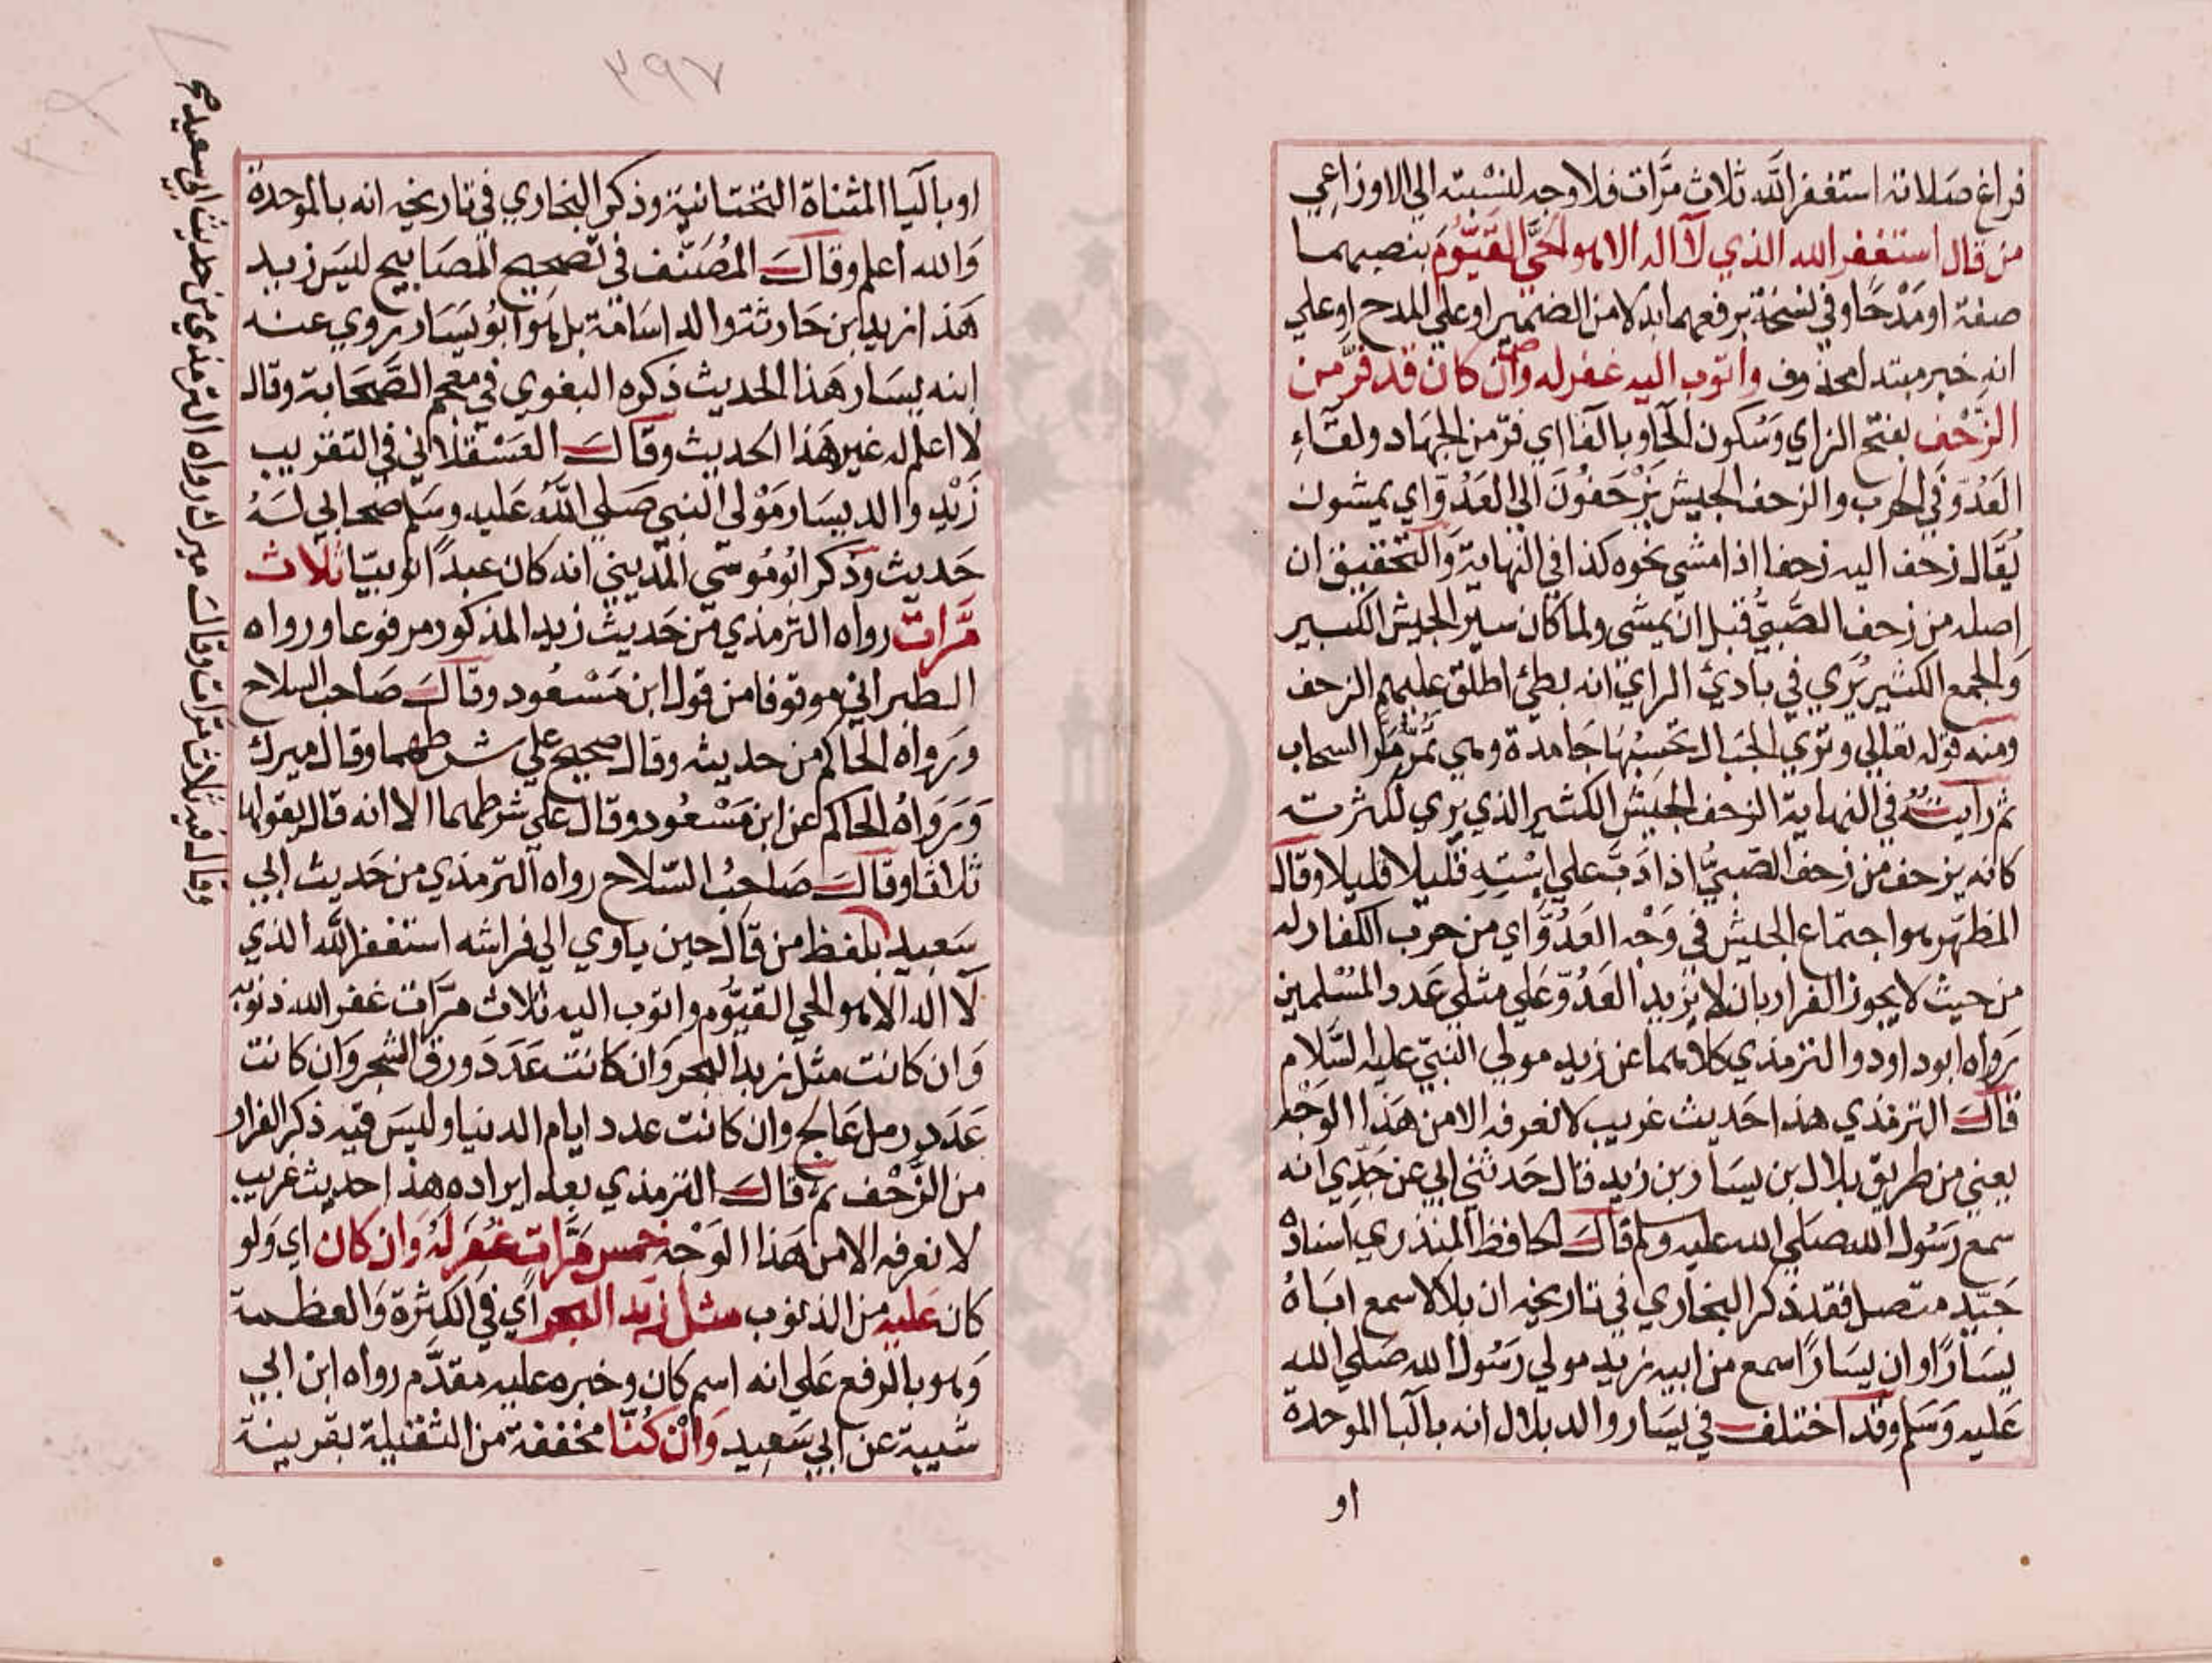 فراغ صلاته استغفر الله ثلاث مرّات فلا وجه لنسبته الي الاوزاعي
من قال استغفر الله الذي لا اله الا هو الحيَّ القيّومَ بنصبهما
صفة او مَدْحًا وفي نسخة برفعهما بدلا من الضمير او علي المدح او علي
انه خبر مبتدا محذوف واتوب اليه غفر له وان كان قد فرّ من
الزّحْف بفتح الزاي وسُكون الحا وبالفا اي فرّ من الجهاد ولقآءِ
العَدُوّ في الحرب والزحف الجيش يَزْحَفُونَ الي العَدُوّ اي يمشون
يُقَال زحف اليه زحفا اذا مشي نحوه كذا في النهاية وَالتحقيق ان
اصله من زحف الصَّبيُّ قبل ان يمشي ولما كان سير الجيش الكبير
وَالجمع الكثير يُري في بادئ الراي انه بطئ اطلق عليهم الزحف
ومنه قوله تعالي وتري الجبال تحسبُهَا جَامدة وهي تَمُرّ مَرَّ السحاب
ثم رايتُهُ في النهاية الزحف الجيش الكثير الذي يري لكثرته
كانه يزحف من زحف الصَّبيُّ اذا دَبّ علي اِسْتِهِ قليلا قليلا وقال
المظهّر هو اجتماع الجيش في وَجْه العَدُوَّ اي من حرب الكفار له
من حيث لا يجوز الفرار بان لا يزيد العَدُوّ عَلي مثلي عَدد المُسْلمين
رَواه ابو داود والترمذي كلاهما عن زيد مولي النبيّ عليه السَّلام
قَالَ الترمذي هذا حَديث غريب لا نعرفه الا من هَذا الوَجْه
يعني من طريق بلال بن يسَار بن زيد قال حَدثني ابي عن جَدِّي انه
سمع رَسُول الله صَلي الله عليه وسلم قَالَ الحافظ المنذري اسنادهُ
جَيّد متصل فقد ذكر البخاري في تاريخه ان بلالا سمع ابَاهُ
يسَارًا وان يسَارًا سمع من ابيه زيد مولي رَسُول الله صَلي الله
عَليه وَسَلم وقد اختلف في يسَار والد بلال انه بالبا الموحدة
او
٣٩٧
او باليا المثناة التحتانية وذكر البخاري في تاريخه انه بالموحدة
وَالله اعلم وقالَ المُصَنّف في تصحيح المصَابيح ليس زيد
هَذا زيد ابن حَارثة والد اسَامة بل هُو ابُو يَسَار روي عنه
ابنه يسَار هَذا الحديث ذكره البغوي في معجم الصَّحَابة وقال
لا اعلم له غير هَذا الحديث وقَالَ العَسْقلاني في التقريب
زَيْد والد يسَار مَوْلي النبي صَلي اللهُ عَليه وسَلم صحابي لَهُ
حَديث وَذكر ابُو مُوسي المديني انه كان عبدًا نوبيّا ثلاث
مَرّات رواه الترمذي من حَديث زيد المذكور مرفوعا ورواه
الطبراني موقوفا من قول ابن مَسْعُود وقالَ صَاحب السلاح
وَرَواه الحاكم من حديثه وقال صحيح علي شرطهما وقال ميرك
وَرَوَاهُ الحاكم عن ابن مَسْعُود وقال علي شرطهما الا انه قال يقولها
ثلاثا وقالَ صَاحبُ السّلاح رواه الترمذي من حَديث ابي
سَعيد بلفظ من قَال حين ياوي الي فراشه استغفر الله الذي
لا اله الا هو الحي القيُّوم واتوب اليه ثلاث مرّات غفر الله ذنوبه
وَان كانت مثل زبد البحر وَان كانت عَدَد وَرق الشجر وَان كانت
عَدَد رمل عَالج وان كانت عدد ايام الدنيا وليسَ فيه ذكر الفرار
من الزَّحْف ثم قالَ الترمذي بعد ايراده هذا حديث غريب
لا نعرفه الا من هَذا الوَجْه خمس مَرَّات غُفرَ لَهُ وَان كان اي وَلو
كان عَليه من الذنوب مثل زبَد البحر اي في الكثرة وَالعظمة
وَهو بالرفع عَلي انه اسم كان وخبره عليه مقدَّم رواه ابن ابي
شيبة عن ابي سَعيد وَانْ كُنَّا مخففة من الثقيلة بقرينة
وقال فيه ثلاث مرات وقالَ ميرك رواه الترمذي من حديث ابي سعيد صح